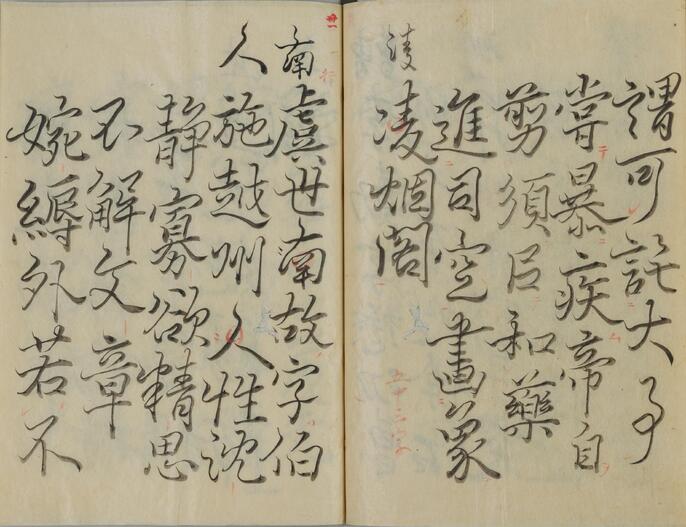 謂可託大事
嘗暴疾帝自
剪須以和藥
進司空畫象
凌
凌烟閣
南
虞世南故字伯
人
施越州人性沈
静寡欲精思
不解文章
婉縟外若不